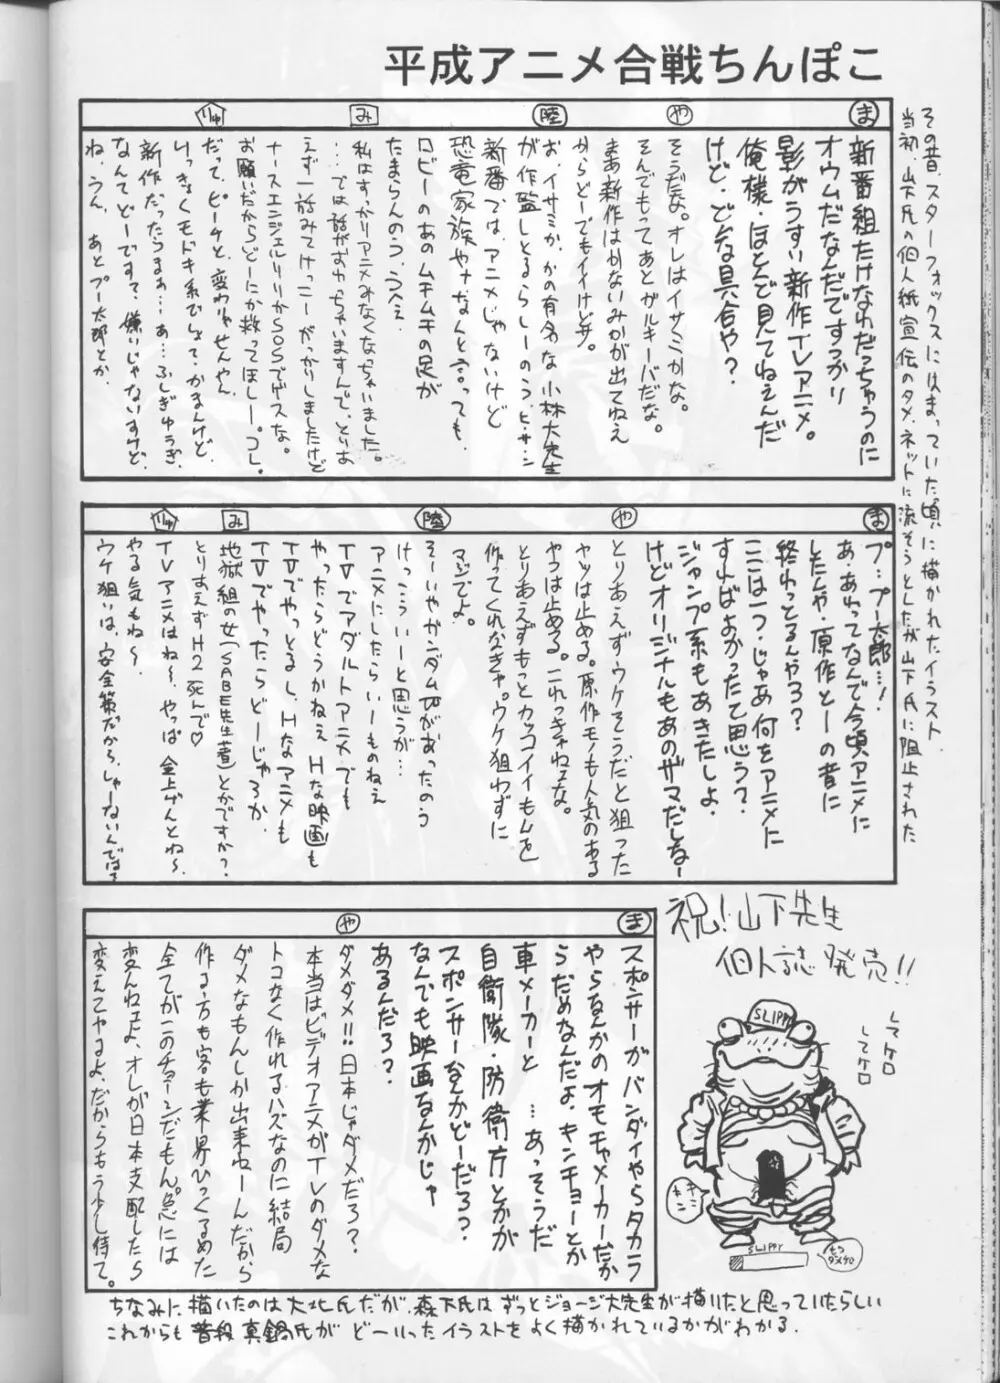 平成アニメ合戦ちんぽこ
その昔、スターフォックスにはまっていた頃に描かれたイラスト
当初、山下氏の個人紙宣伝のタメ、ネットに流そうとしたが山下氏に阻止された
ま
新番組たけなわだっちゅうのに
オウムだなんだですっかり
影がうすい新作TVアニメ。
俺様・ほとんど見てねぇんだ
けど、どんな具合や？
や
そうだな。オレはイサミかな。
そんでもってあとガルキーバだな。
まあ新作はかないみかが出てねえ
からどーでもイイけどサ。
陸
お、イサミか、かの有名な小林大先生
が作監しとるらしーのう、ヒ・サ・シ
新番では、アニメじゃないけど
恐竜家族やナなんと言っても、
ロビーのあのムチムチの足が
たまらんのう、うへえ
み
私はすっかりアニメみなくなっちゃいました。
…では話がおわっちゃいますんで、とりあ
えず一話みてけっこーがっかりしましたけど
ナースエンジェルりりかSOSでゲスな。
お願いだからどーにか救ってほしー。コレ。
りゅ
だって、ピーチと、変わりゃせんやん
けっきょくモドキ系でしょて・かまんけど、
新作だったらまぁ…あ…ふしぎゆうぎ、
なんてどーですて、嫌いじゃないすけど、
ね、うん、あとプー太郎とか、
ま
プ…プー太郎…！
あ・あれってなんで今頃アニメに
したんや・原作とーの昔に
終わっとるんやろ？
ここは一つ・じゃあ何をアニメに
すればよかったて思う？・
ジャンプ系もあきたしよ、
けどオリジナルもあのザマだしなー
や
とりあえずウケそうだと狙った
ヤツは止める。原作モノも人気のある
やつは止める。これっきゃねェな。
とりあえずもっとカッコイイもんを
作ってくれなきゃ。ウケ狙わずに
マジでよ。
陸
そーいやガンダムHがあったのう
けっこういーと思うが…
アニメにしたらいーものねえ
TVでアダルトアニメでも
やったらどうかねぇHな映画も
TVでやっとるし、Hなアニメも
TVでやったらどーじゃろか、
み
地獄組の女（SABE先生著）とかですか？
とりあえずH2死んで♡
りゅ
TVアニメはね〜、やっぱ金上げんとね〜、
やる気もね〜
ウケ狙いは、安全策だから、しゃーないんでは？
ま
スポンサーがバンダイやらタカラ
やらなんかのオモチャメーカーだか
らだめなんだよ、キンチョーとか
車メーカーと…あっそうだ
自衛隊・防衛庁とかが
スポンサーなんかどーだろ？
なんでも映画なんかじゃ
あるんだろ？
や
ダメダメ!!日本じゃダメだろ？
本当はビデオアニメがTVのダメな
トコなく作れるハズなのに結局
ダメなもんしか出来ねーんだから
作る方も客も業界ひっくるめた
全てがこのチョーシだもん。急には
変んねェよ、オレが日本支配したら
変えてやるよ、だからもう少し待て。
祝！山下先生
個人誌発売!!
してケロ
してケロ
SLIPPY
キキーン
SLIPPY
もつ
ダメケロ
ちなみに描いたのは大北氏だが、森下氏はずっとジョージ大先生が描いたと思っていたらしい
これからも普段真鍋氏がどーいったイラストをよく描かれているかがわかる。